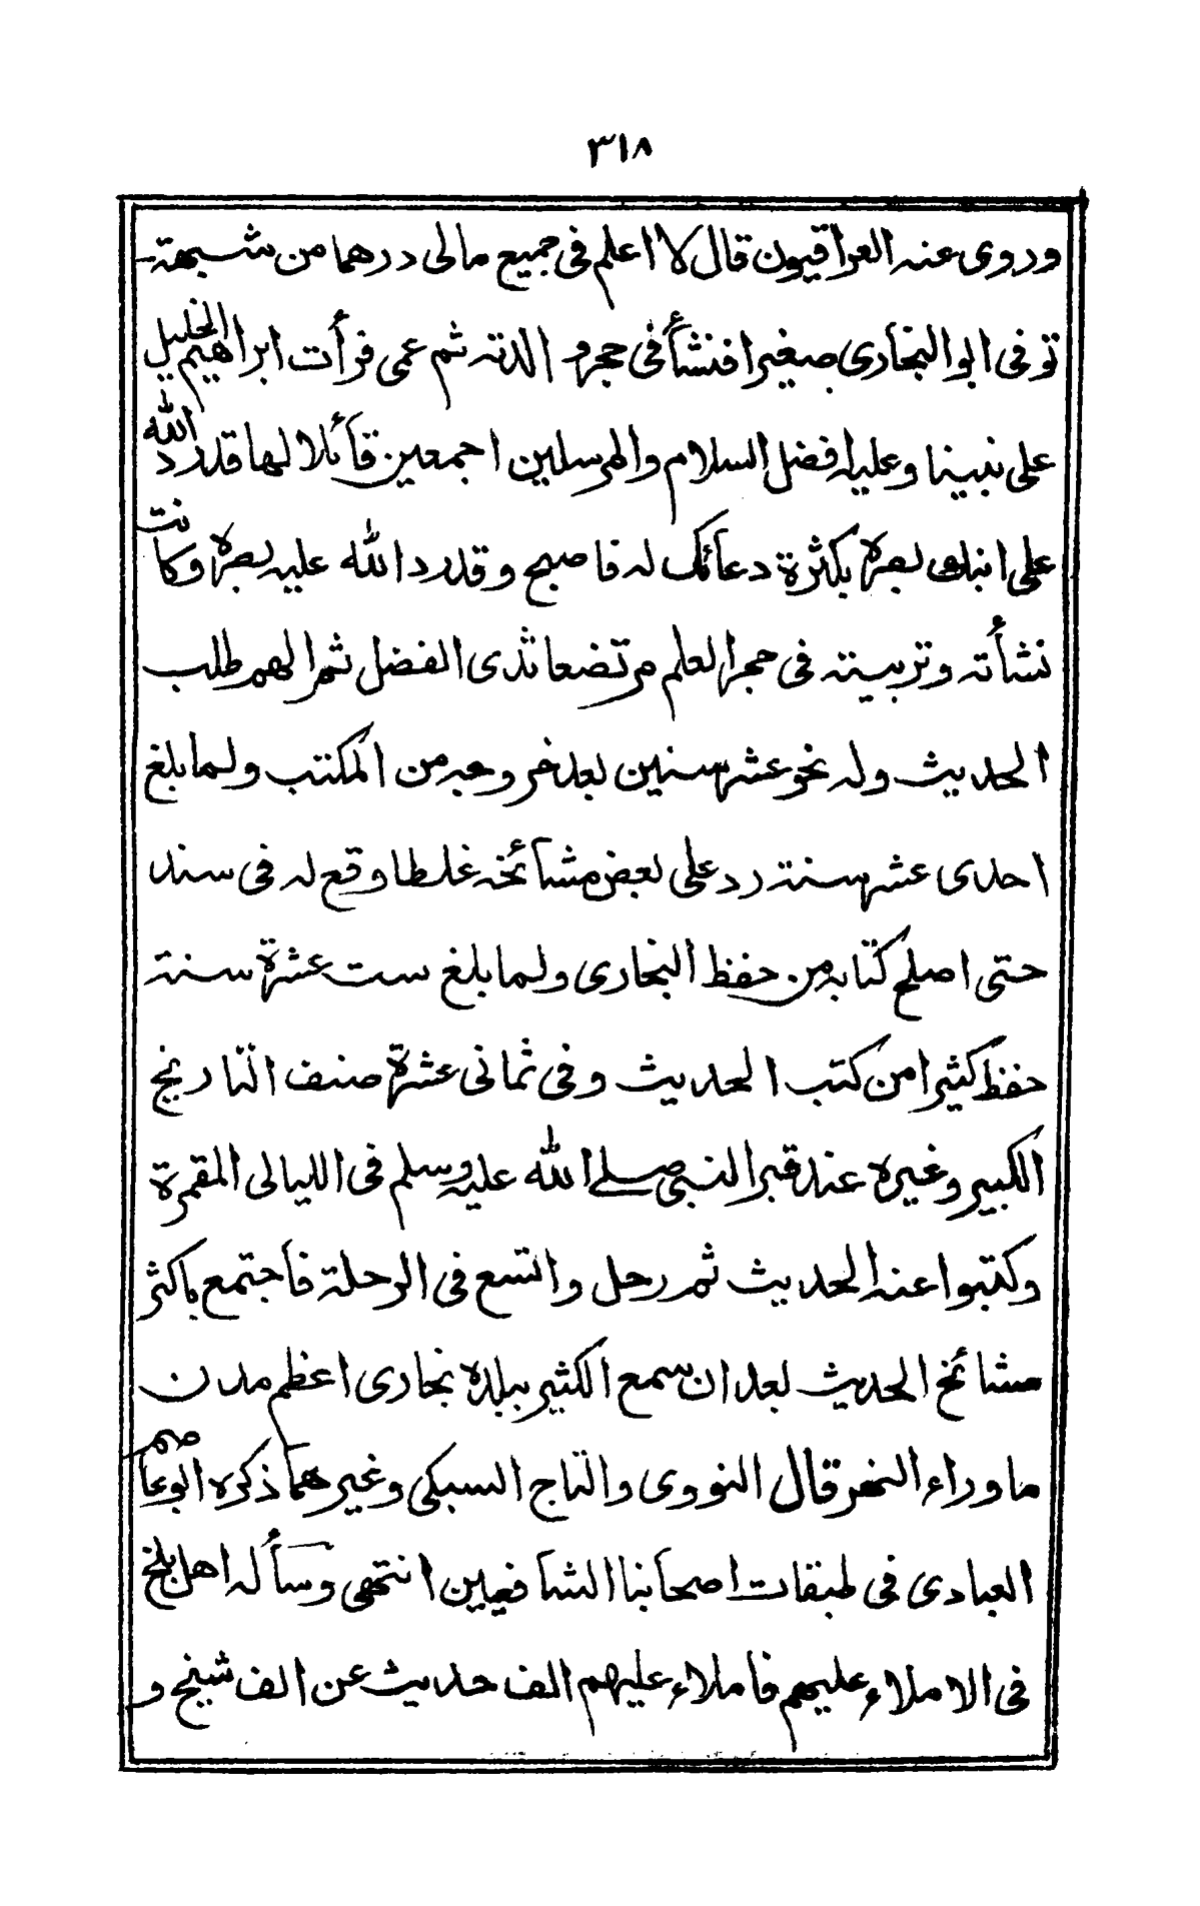 ٣١٨
وروى عنه العراقيون قال لا اعلم فى جميع مالى درهما من شبهة
توفى ابو البخارى صغيرا فنشأ فى حجر والدته ثم عمى فرأت ابراهيم الخليل
على نبينا وعليه افضل السلام والمرسلين اجمعين قآئلا لها قد رد الله
على ابنك بصره بكثرة دعآئك له فاصبح وقد رد الله عليه بصره وكانت
نشأته وتربيته فى حجر العلم مرتضعا ثدى الفضل ثم الهم طلب
الحديث وله نحو عشر سنين بعد خروجه من المكتب ولما بلغ
احدى عشر سنة رد على بعض مشآئخه غلطا وقع له فى سند
حتى اصلح كتابه من حفظ البخارى ولما بلغ ست عشرة سنة
حفظ كثيرا من كتب الحديث وفى ثمانى عشرة صنف التاريخ
الكبير وغيره عند قبر النبى صلے الله عليه وسلم فى الليالى المقمرة
وكتبوا عنه الحديث ثم رحل واتسع فى الرحلة فاجتمع باكثر
مشائخ الحديث بعد ان سمع الكثير ببلده بخارى اعظم مدن
ما وراء النهر قال النووى والتاج السبكى وغيرهما ذكره ابو عاصم
العبادى فى طبقات اصحابنا الشافعيين انتهى وسأله اهل بلخ
فى الاملاء عليهم فاملاء عليهم الف حديث عن الف شيخ و